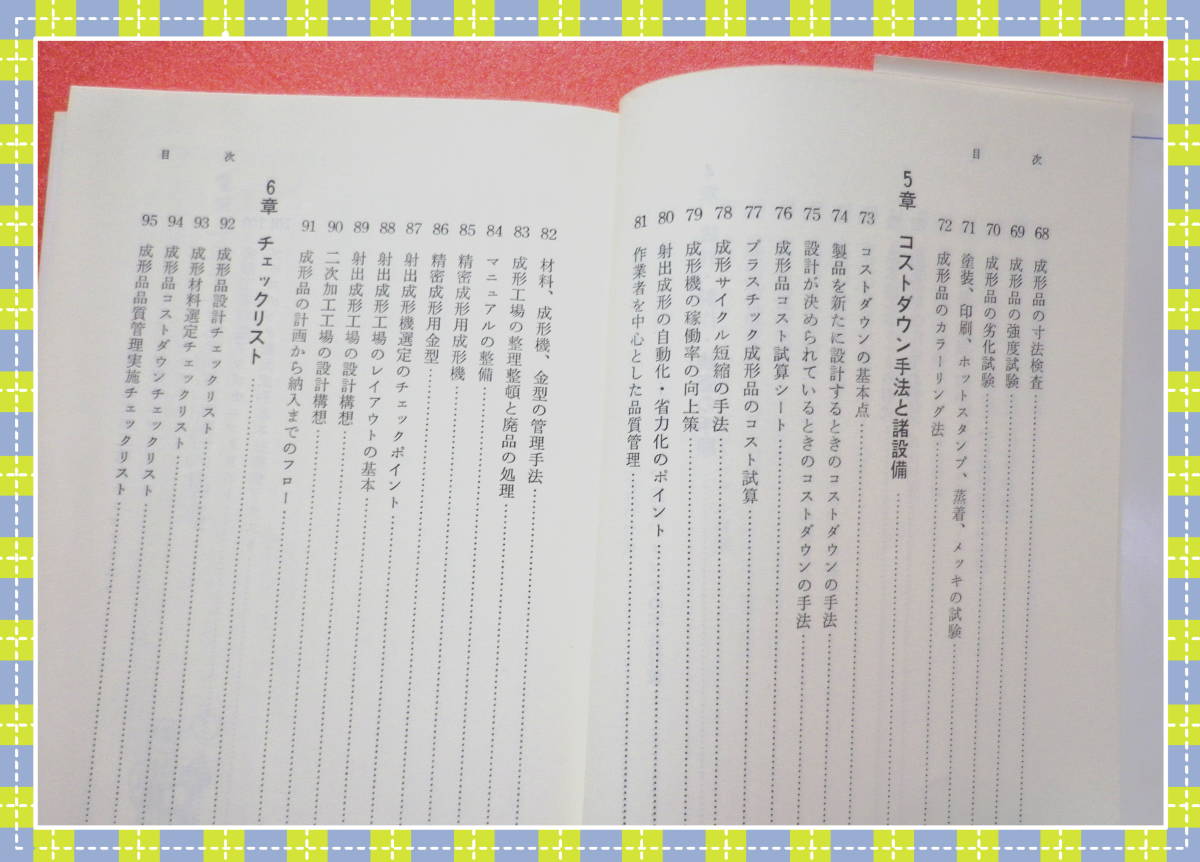 目次
68 成形品の寸法検査
69 成形品の強度試験
70 成形品の劣化試験
71 塗装、印刷、ホットスタンプ、蒸着、メッキの試験
72 成形品のカラーリング法
5章 コストダウン手法と諸設備
73 コストダウンの基本点
74 製品を新たに設計するときのコストダウンの手法
75 設計が決められているときのコストダウンの手法
76 成形品コスト試算シート
77 プラスチック成形品のコスト試算
78 成形サイクル短縮の手法
79 成形機の稼働率の向上策
80 射出成形の自動化・省力化のポイント
81 作業者を中心とした品質管理
目次
82 材料、成形機、金型の管理手法
83 成形工場の整理整頓と廃品の処理
84 マニュアルの整備
85 精密成形用成形機
86 精密成形用金型
87 射出成形機選定のチェックポイント
88 射出成形工場のレイアウトの基本
89 射出成形工場の設計構想
90 二次加工工場の設計構想
91 成形品の計画から納入までのフロー
6章 チェックリスト
92 成形品設計チェックリスト
93 成形材料選定チェックリスト
94 成形品コストダウンチェックリスト
95 成形品品質管理実施チェックリスト